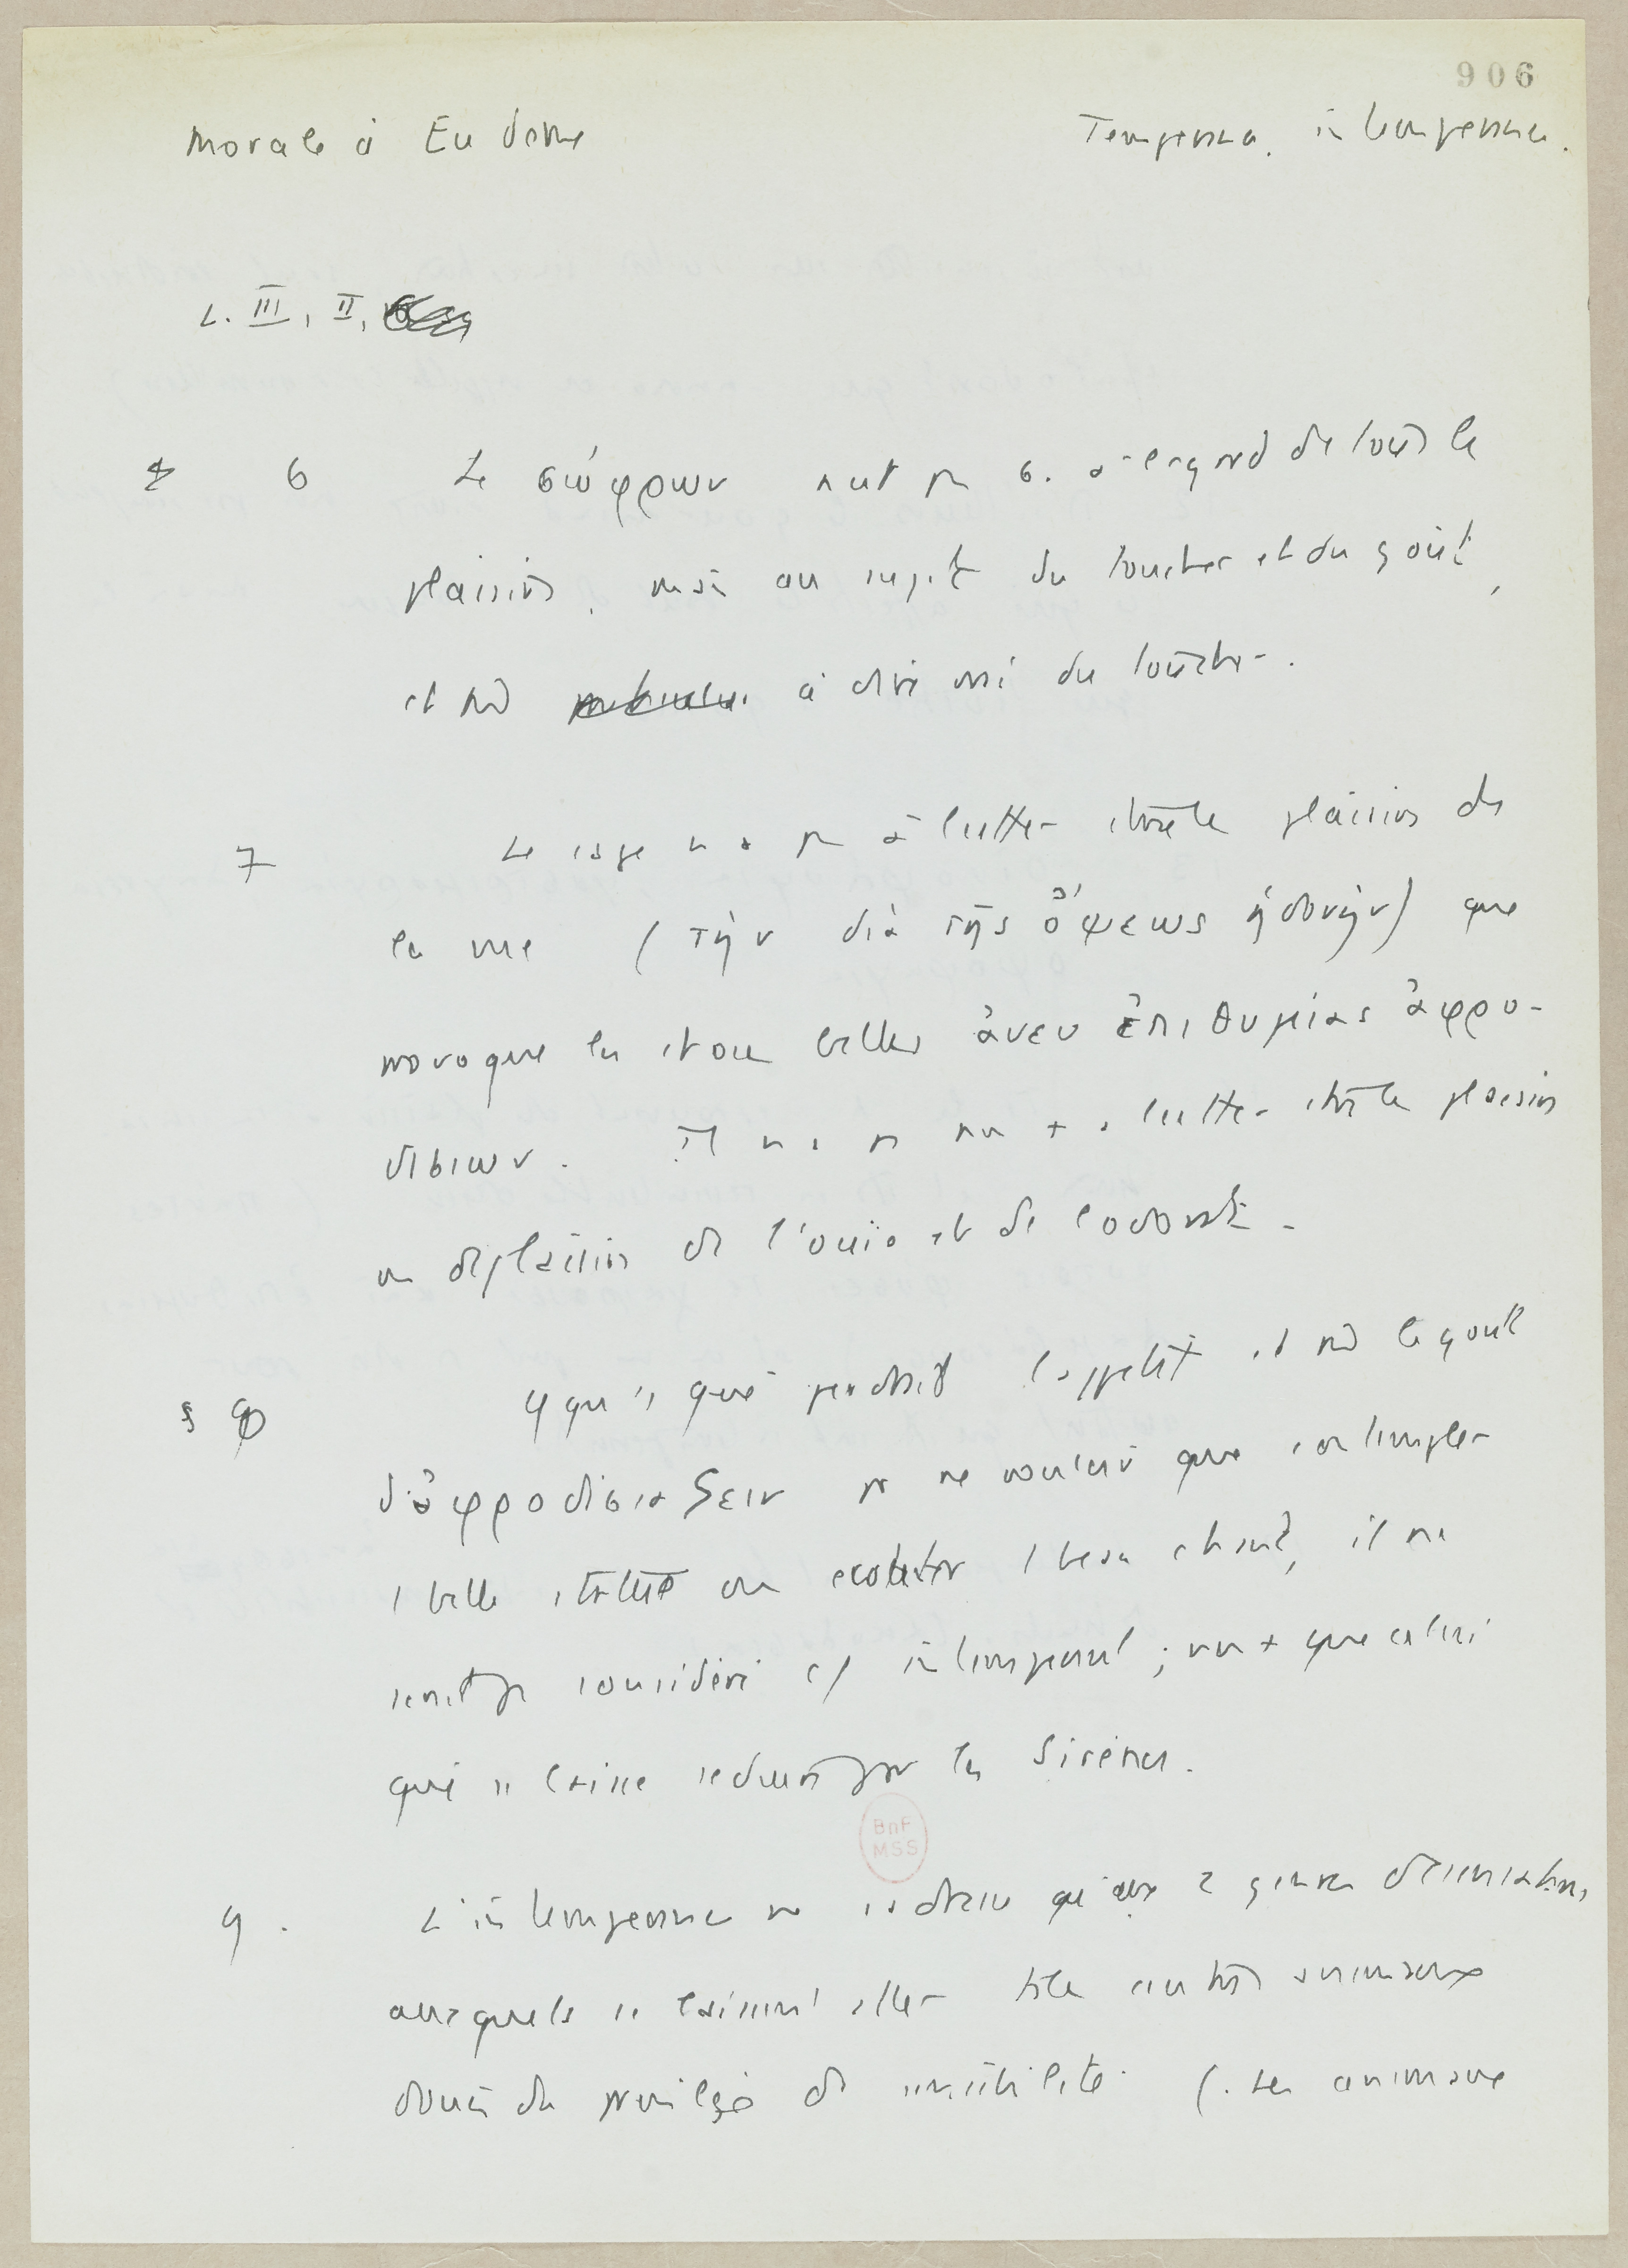 906
Morale à Eudème
Tempérance. intempérance.
L. III, II,
6 Le σώφρων n'est pas σ. à l'égard de tous les
plaisirs, mais au sujet du toucher et du goût,
et à dire vrai du toucher.
7 Le sage n'a pas à lutter contre les plaisirs de
la vue (τὴν διὰ τῆς ὄψεως ἡδονὴν) que
provoque les choses belles ἄνευ ἐπιθυμίας ἀφρο-
δισιων. Il n'a pas non + à lutter contre les plaisirs
ou déplaisirs de l'ouïe et de l'odorat.
§ 8 qui perdrait l'appétit et le goût
d'ἀφροδισιαζειν pr ne vouloir que contempler
1 belle statue ou écouter 1 beau chant, il ne
serait pas considéré c/ intempérant ; non + que celui
qui se laisse séduire par les Sirènes.
BnF
MSS
9. L'intempérance ne s'adresse qu'aux 2 genres de sensations
auxquels se laissent aller les autres animaux
doués du privilège de sensibilité. (Les animaux